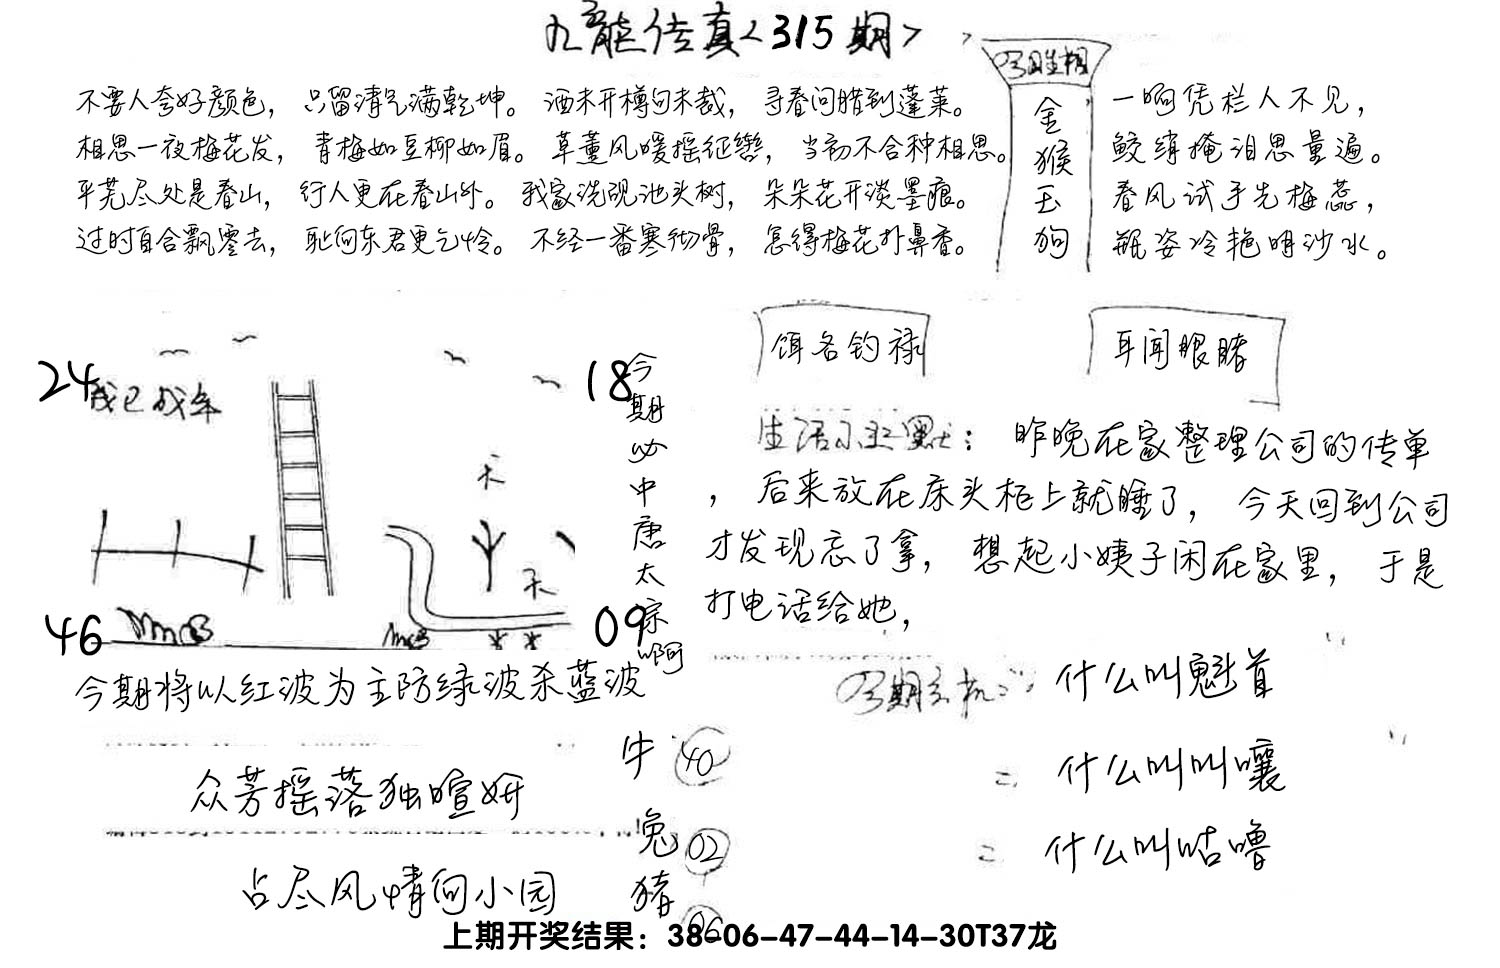 九龍传真<315期>
今日生相
金猴玉狗
不要人夸好颜色，只留清气满乾坤。酒未开樽句未裁，寻春问腊到蓬莱。
相思一夜梅花发，青梅如豆柳如眉。草薰风暖摇征辔，当初不合种相思。
平芜尽处是春山，行人更在春山外。我家洗砚池头树，朵朵花开淡墨痕。
过时自合飘零去，耻向东君更乞怜。不经一番寒彻骨，怎得梅花扑鼻香。
一晌凭栏人不见，
鲛绡掩泪思量遍。
春风试手先梅蕊，
瓶姿冷艳明沙水。
24
18
46
09
天
天
今期必中唐太宗啊
今期将以红波为主防绿波杀蓝波
饵名钓禄
耳闻眼睹
生活小幽默：昨晚在家整理公司的传单
，后来放在床头柜上就睡了，今天回到公司
才发现忘了拿，想起小姨子闲在家里，于是
打电话给她，
今期玄机：什么叫魁首
=什么叫叫嚷
=什么叫咕噜
众芳摇落独暄妍
占尽风情向小园
牛 40
兔 02
猪 06
上期开奖结果：38-06-47-44-14-30T37龙